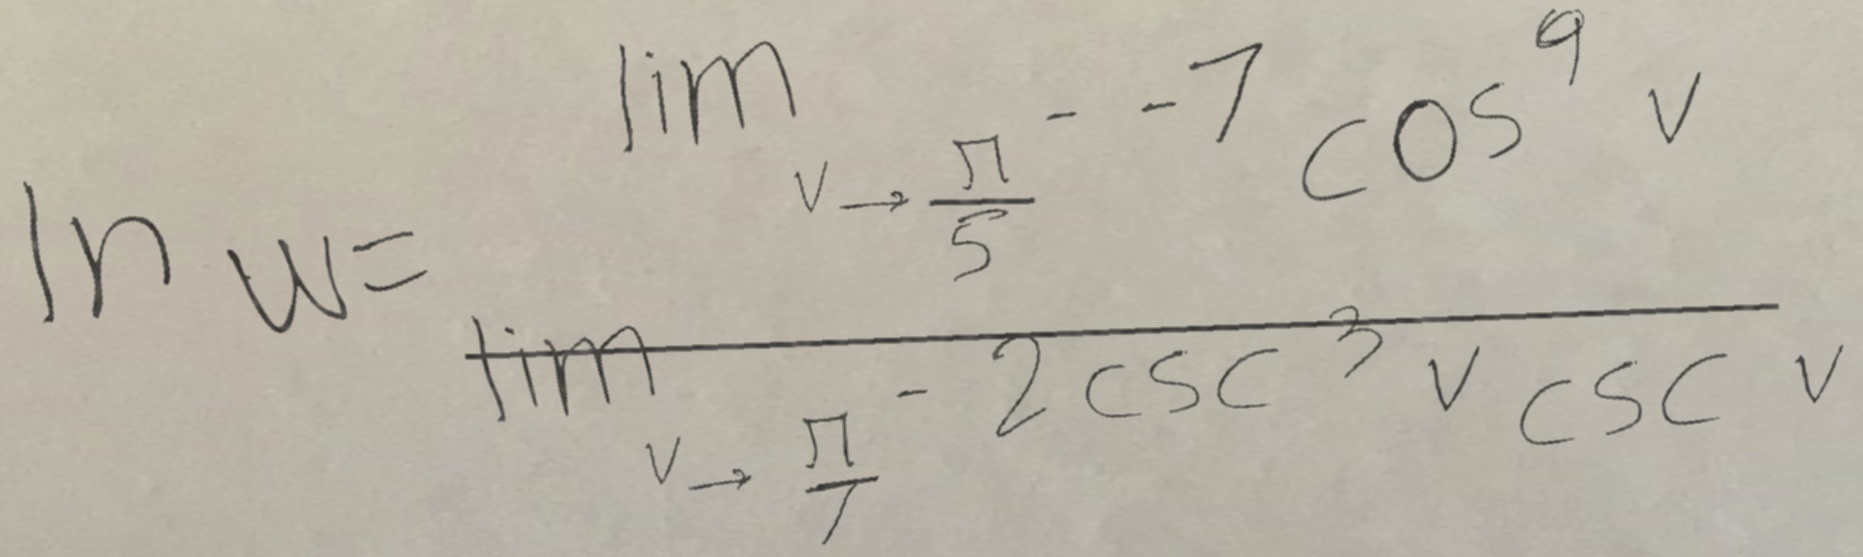 \ln w = \frac{\lim_{v \to \frac{\pi}{5}^{-}} -7 \cos^{9} v}{\lim_{v \to \frac{\pi}{7}^{-}} 2 \csc^{3} v \csc v}